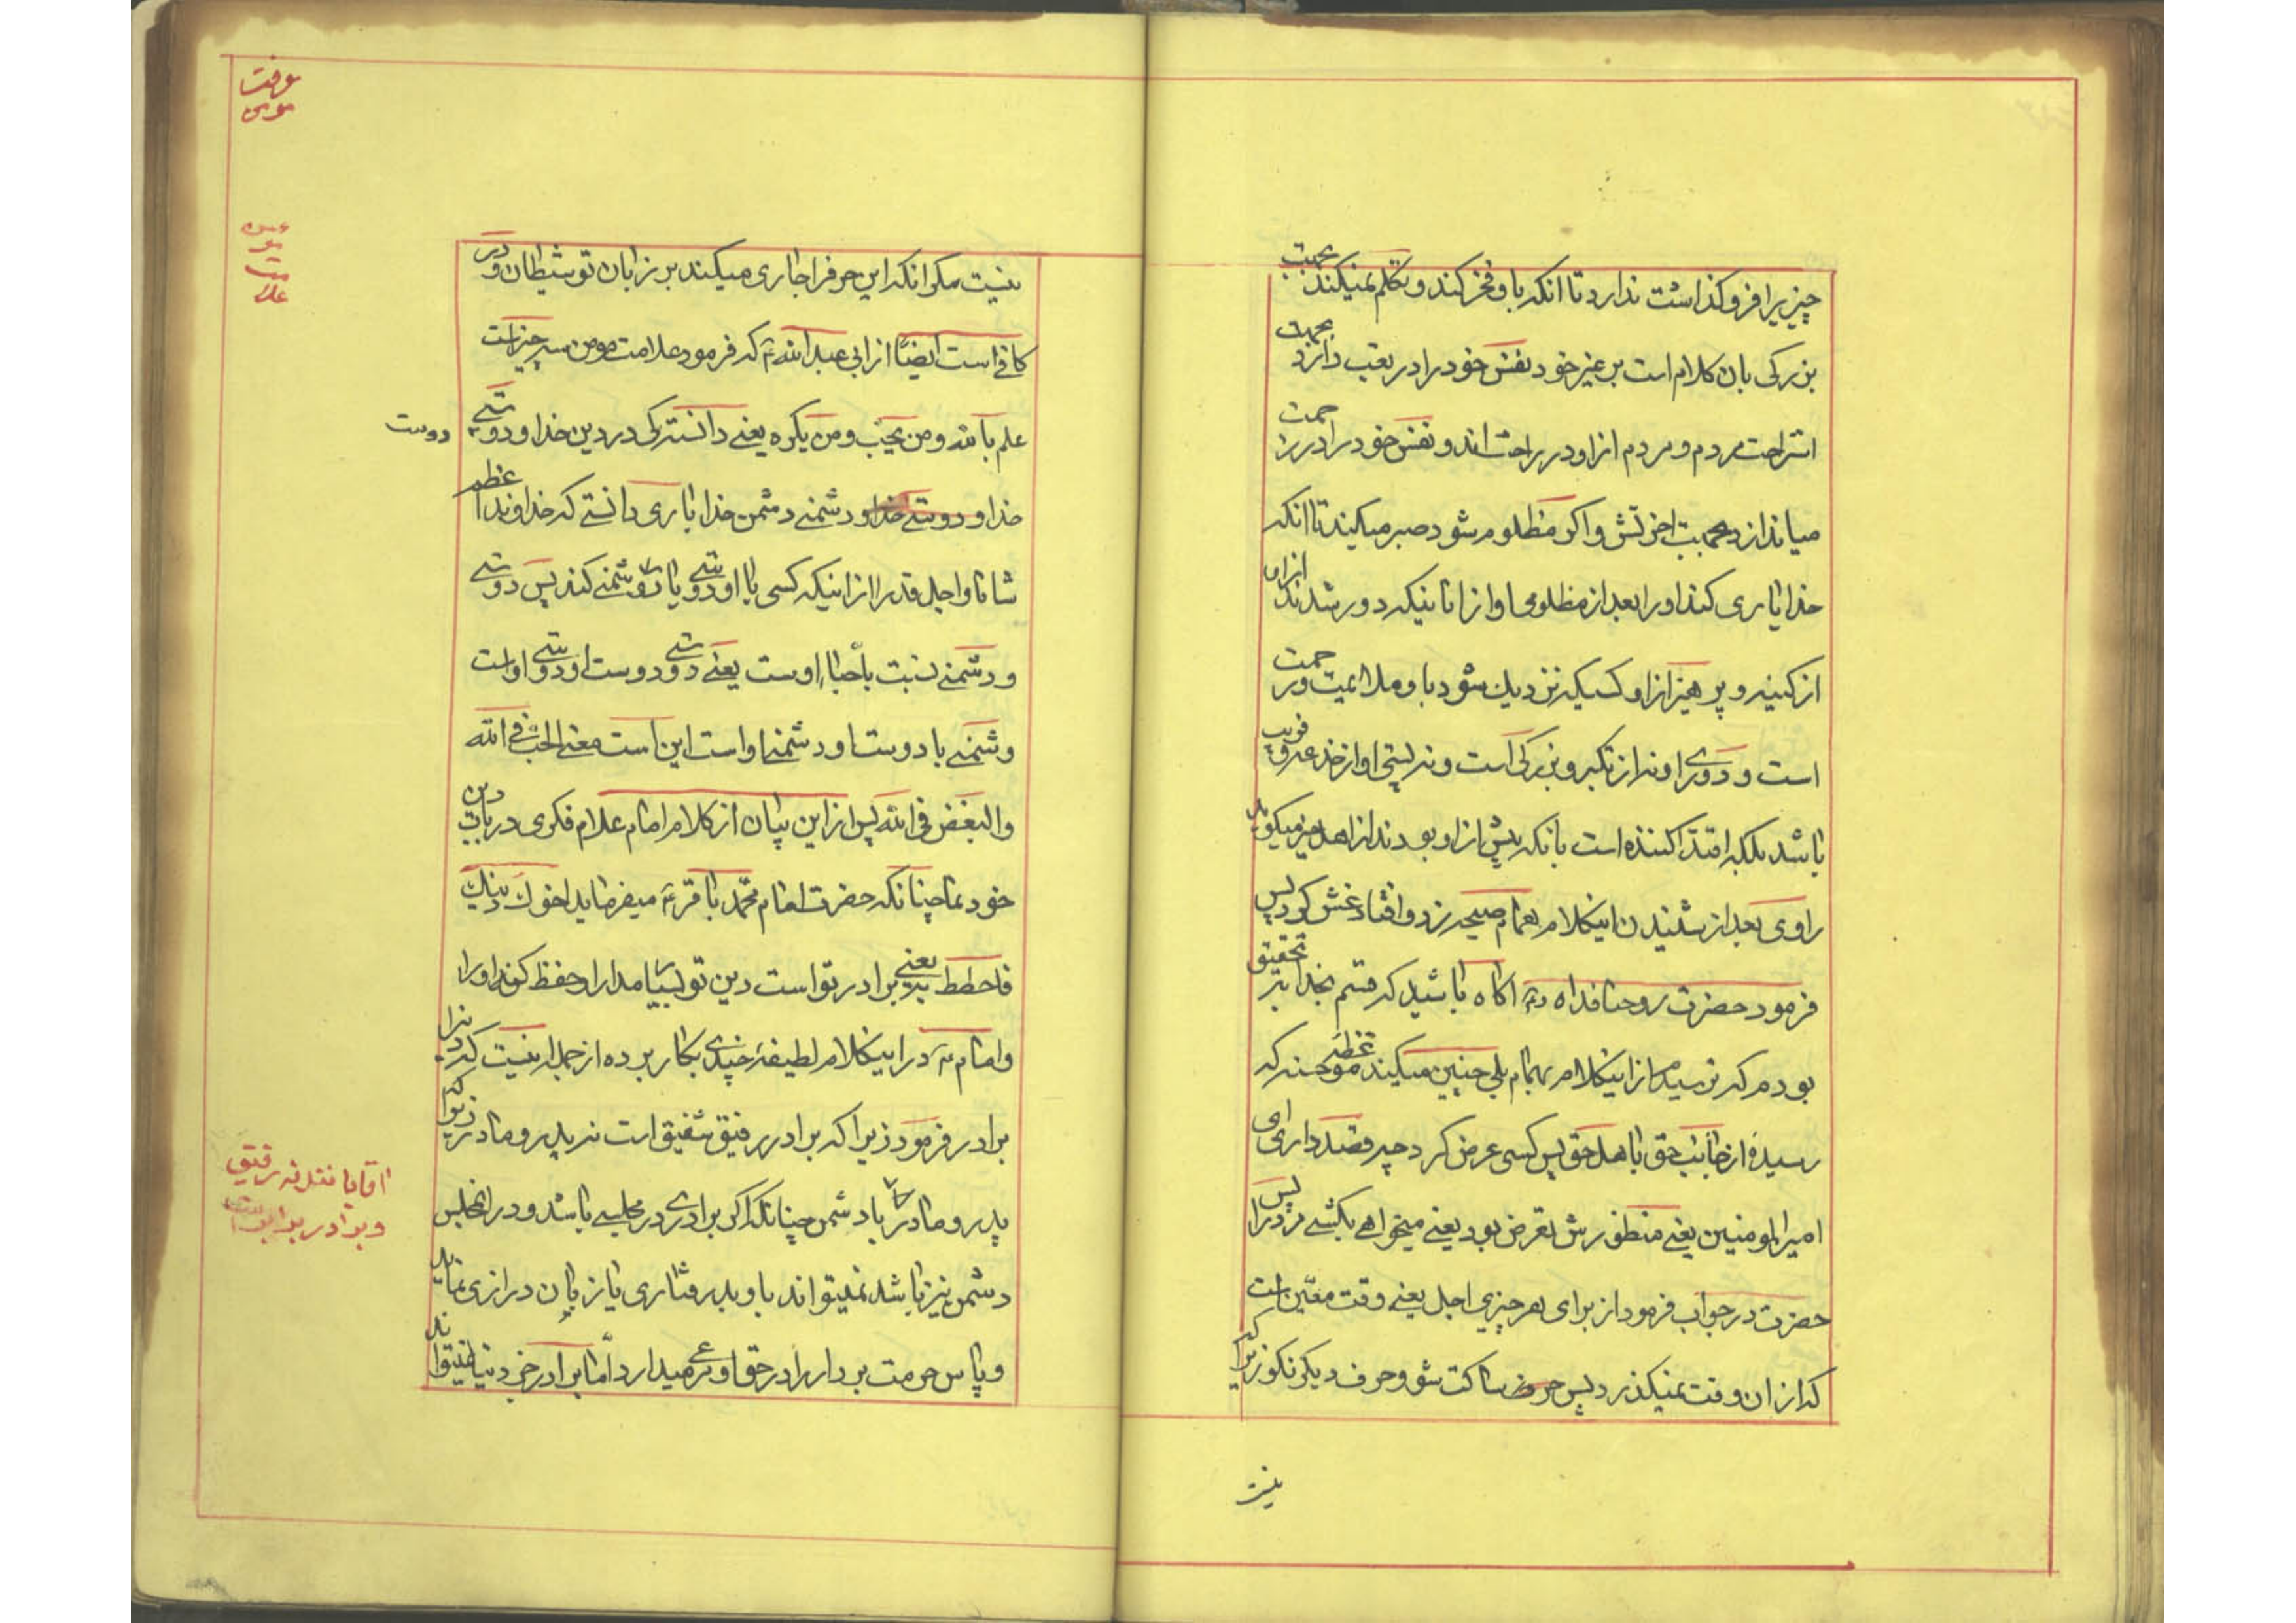 چیزیرا فروکذاست ندارد تا انکه باو فخر کند و تکلم نمیکند بجهت
بزرکی بان کلام است بر غیر خود نفس خود را در تعب دارد بجهت
استراحت مردم و مردم از او در راحت اند و نفس خود را در زحمت
میاندازد بجهت اخرتش و اکر مظلوم شود صبر میکیند تا انکه
خدا یاری کند او را بعد از مظلومی او از انانیکه دور شدند از او
از کینه و پرهیز از او کسیکه نزدیک شود باو ملایمیت و رحمت
است و دوری او نه از تکبر و بزرکی است و نه پستی او از خدعه و فریب
باشد بلکه اقتدا کننده است بانکه پیش از او بودند از اهل خیر میکوید
راوی بعد از شنیدن اینکلام همام صیحه زد و افتاد غش کرد پس
فرمود حضرت روحنا فداه اکاه باشید که قسم بخدا بتحقیق
بودم که ترسیدم از اینکلام بهمام بلی چنین میکیند موعظه حسنه که
رسیده از جانب حق باهل حق پس کسی عرض کرد چه قصد داری ای
امیرالمومنین یعنی منظورش تعرض بود یعنی میخواهی بکشی مردرا پس
حضرت در جواب فرمود از برای هر چیزی اجل یعنی وقت معین است
که از ان وقت نمیکذرد پس ساکت شو و حرف دیکر نکو زیرا که
نیست
نیست مکر انکه این حرفرا جاری میکیند بر زبان تو شیطان و در
کافی است ایضًا از ابی عبدالله که فرمود علامت مومن سه چیز است
علم بالله و من یحب و من یکره یعنی دانستنرکی در دین خدا و دوستی
دوست
خدا و دوستی خدا و دشمنی دشمن خدا یاری دانستی که خداوند اعظم
شانا و اجل قدرا از انیکه کسی با او دوستی یا دشمنی کند پس دوستی
و دشمنی نسبت باحباء اوست یعنی دوستی دوست او دوستی او است
و شمنی با دوست او دشمنی او است این است معنی الحب فی الله
والبغض فی الله پس از این بیان از کلام امام علام فکری در باب دین
خود نما چنانکه حضرت امام محمد باقر میفرماید اخوک دینک
فاحطط یعنی برادر تو است دین تو حفظ کن او را
و امام در اینکلام لطیفه چندی بکار برده از جمله نیست که دینرا
برادر فرمود زیرا که برادر رفیق شفیق است نه پدر و مادر زیرا که
پدر و مادر با دشمن چنانکه اکر برادری در مجلسی باشد و در انمجلس
دشمن نیز باشد نمیتواند باو بدرفتاری یا زبان درازی نماید
و پاس حرمت برادر را در حق او مرعی میدارد اما برادر دنیا نمیتواند